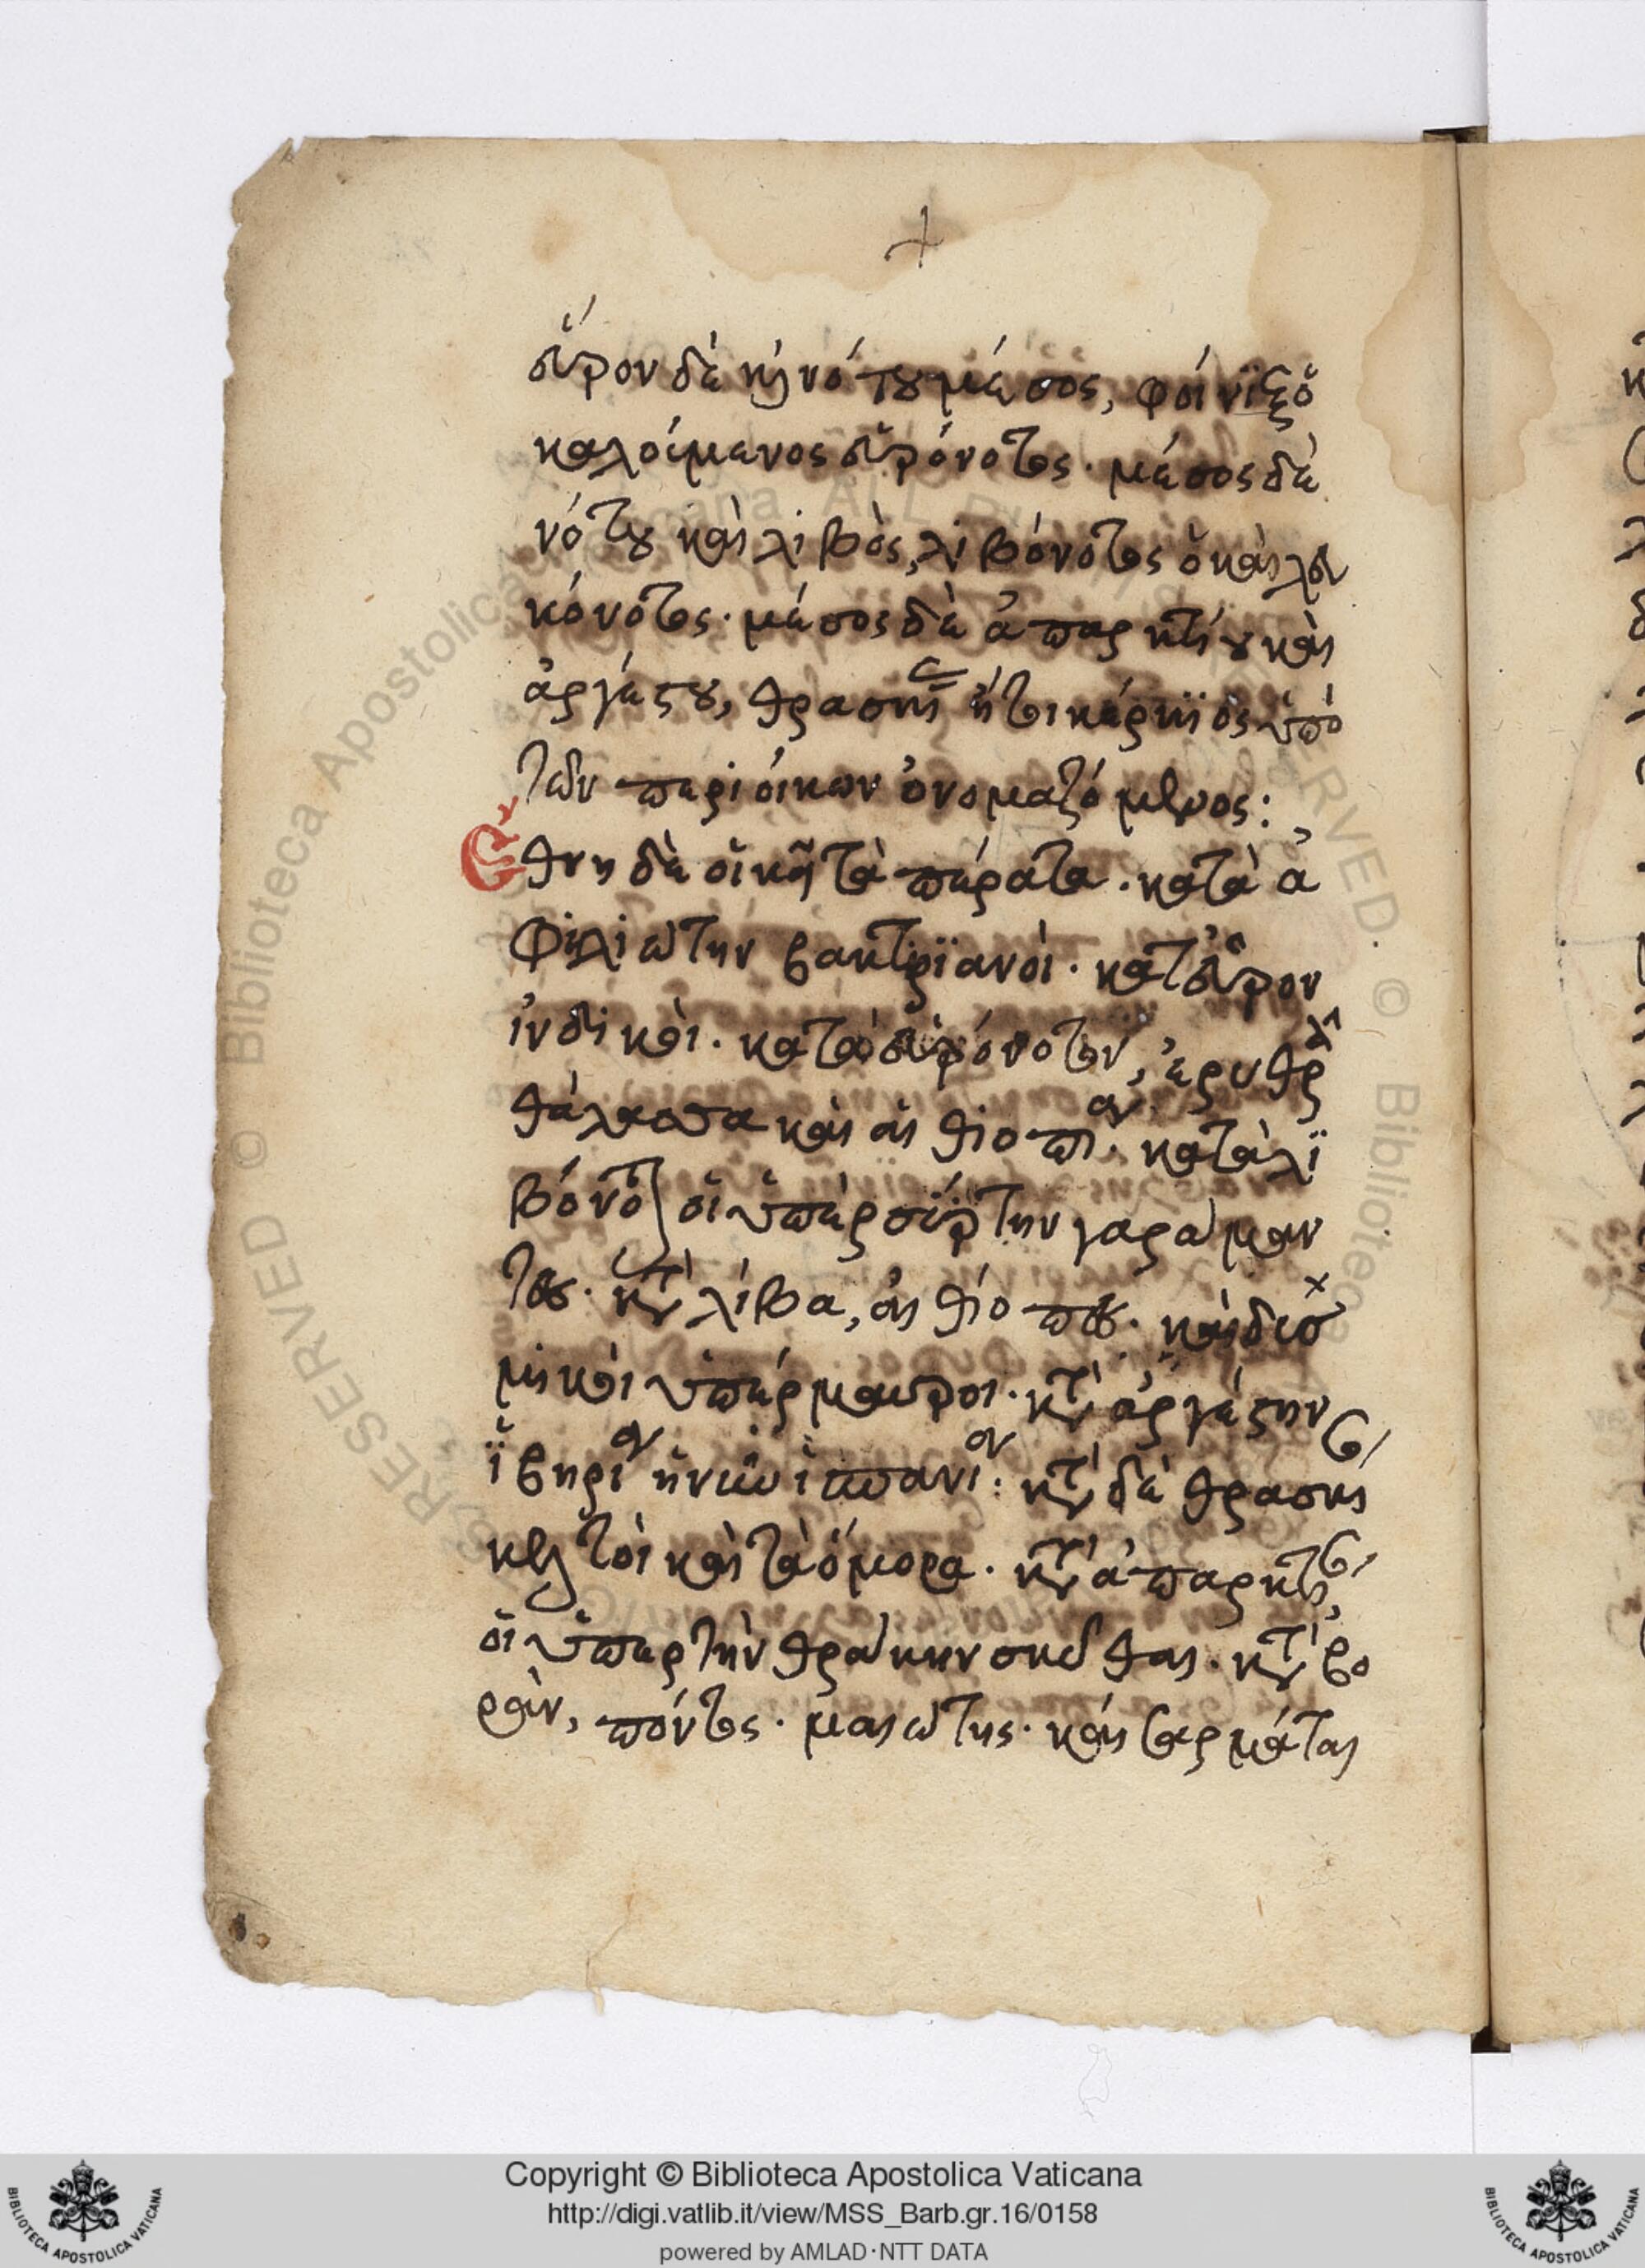 εὖρον δὲ καὶ νότου μέσος, φοίνιξ ὁ
καλούμενος εὐρόνοτος· μέσος δὲ
νότου καὶ λιβὸς, λιβόνοτος ὁ καὶ λευ
κόνοτος· μέσος δὲ ἀπαρκτίου καὶ
ἀργέστου, θρασκίας ἤτοι κέρκιος ὑπὸ
τῶν περιοίκων ὀνομαζόμενος:
Ἔθνη δὲ οἰκεῖ τὰ πέρατα· κατὰ ἀ
φιλιώτην βακτριανοὶ· κατ' εὖρον
ἰνδικοὶ· κατὰ εὐρόνοτον, ἐρυθρὰ
θάλασσα καὶ αἰθιοπίαν· κατὰ λι
βόνοτον οἱ ὑπὲρ σύρτην γαράμαν
τες· κατὰ λίβα, αἰθίοπες· καὶ δυσ
μικοὶ ὑπὲρ μαυροι· κατὰ ἀργέστην
ἰβηρίαν ἡ νῦν ἰσπανίαν: κατὰ δὲ θρασκίας
κελτοὶ καὶ τὰ ὅμορα· κατὰ ἀπαρκτίας,
οἱ ὑπερ τὴν θράκην σκύθαι· κατὰ βο
ρὰν, πόντος· μαιώτης· καὶ σαρμάται
Copyright © Biblioteca Apostolica Vaticana
http://digi.vatlib.it/view/MSS_Barb.gr.16/0158
powered by AMLAD·NTT DATA